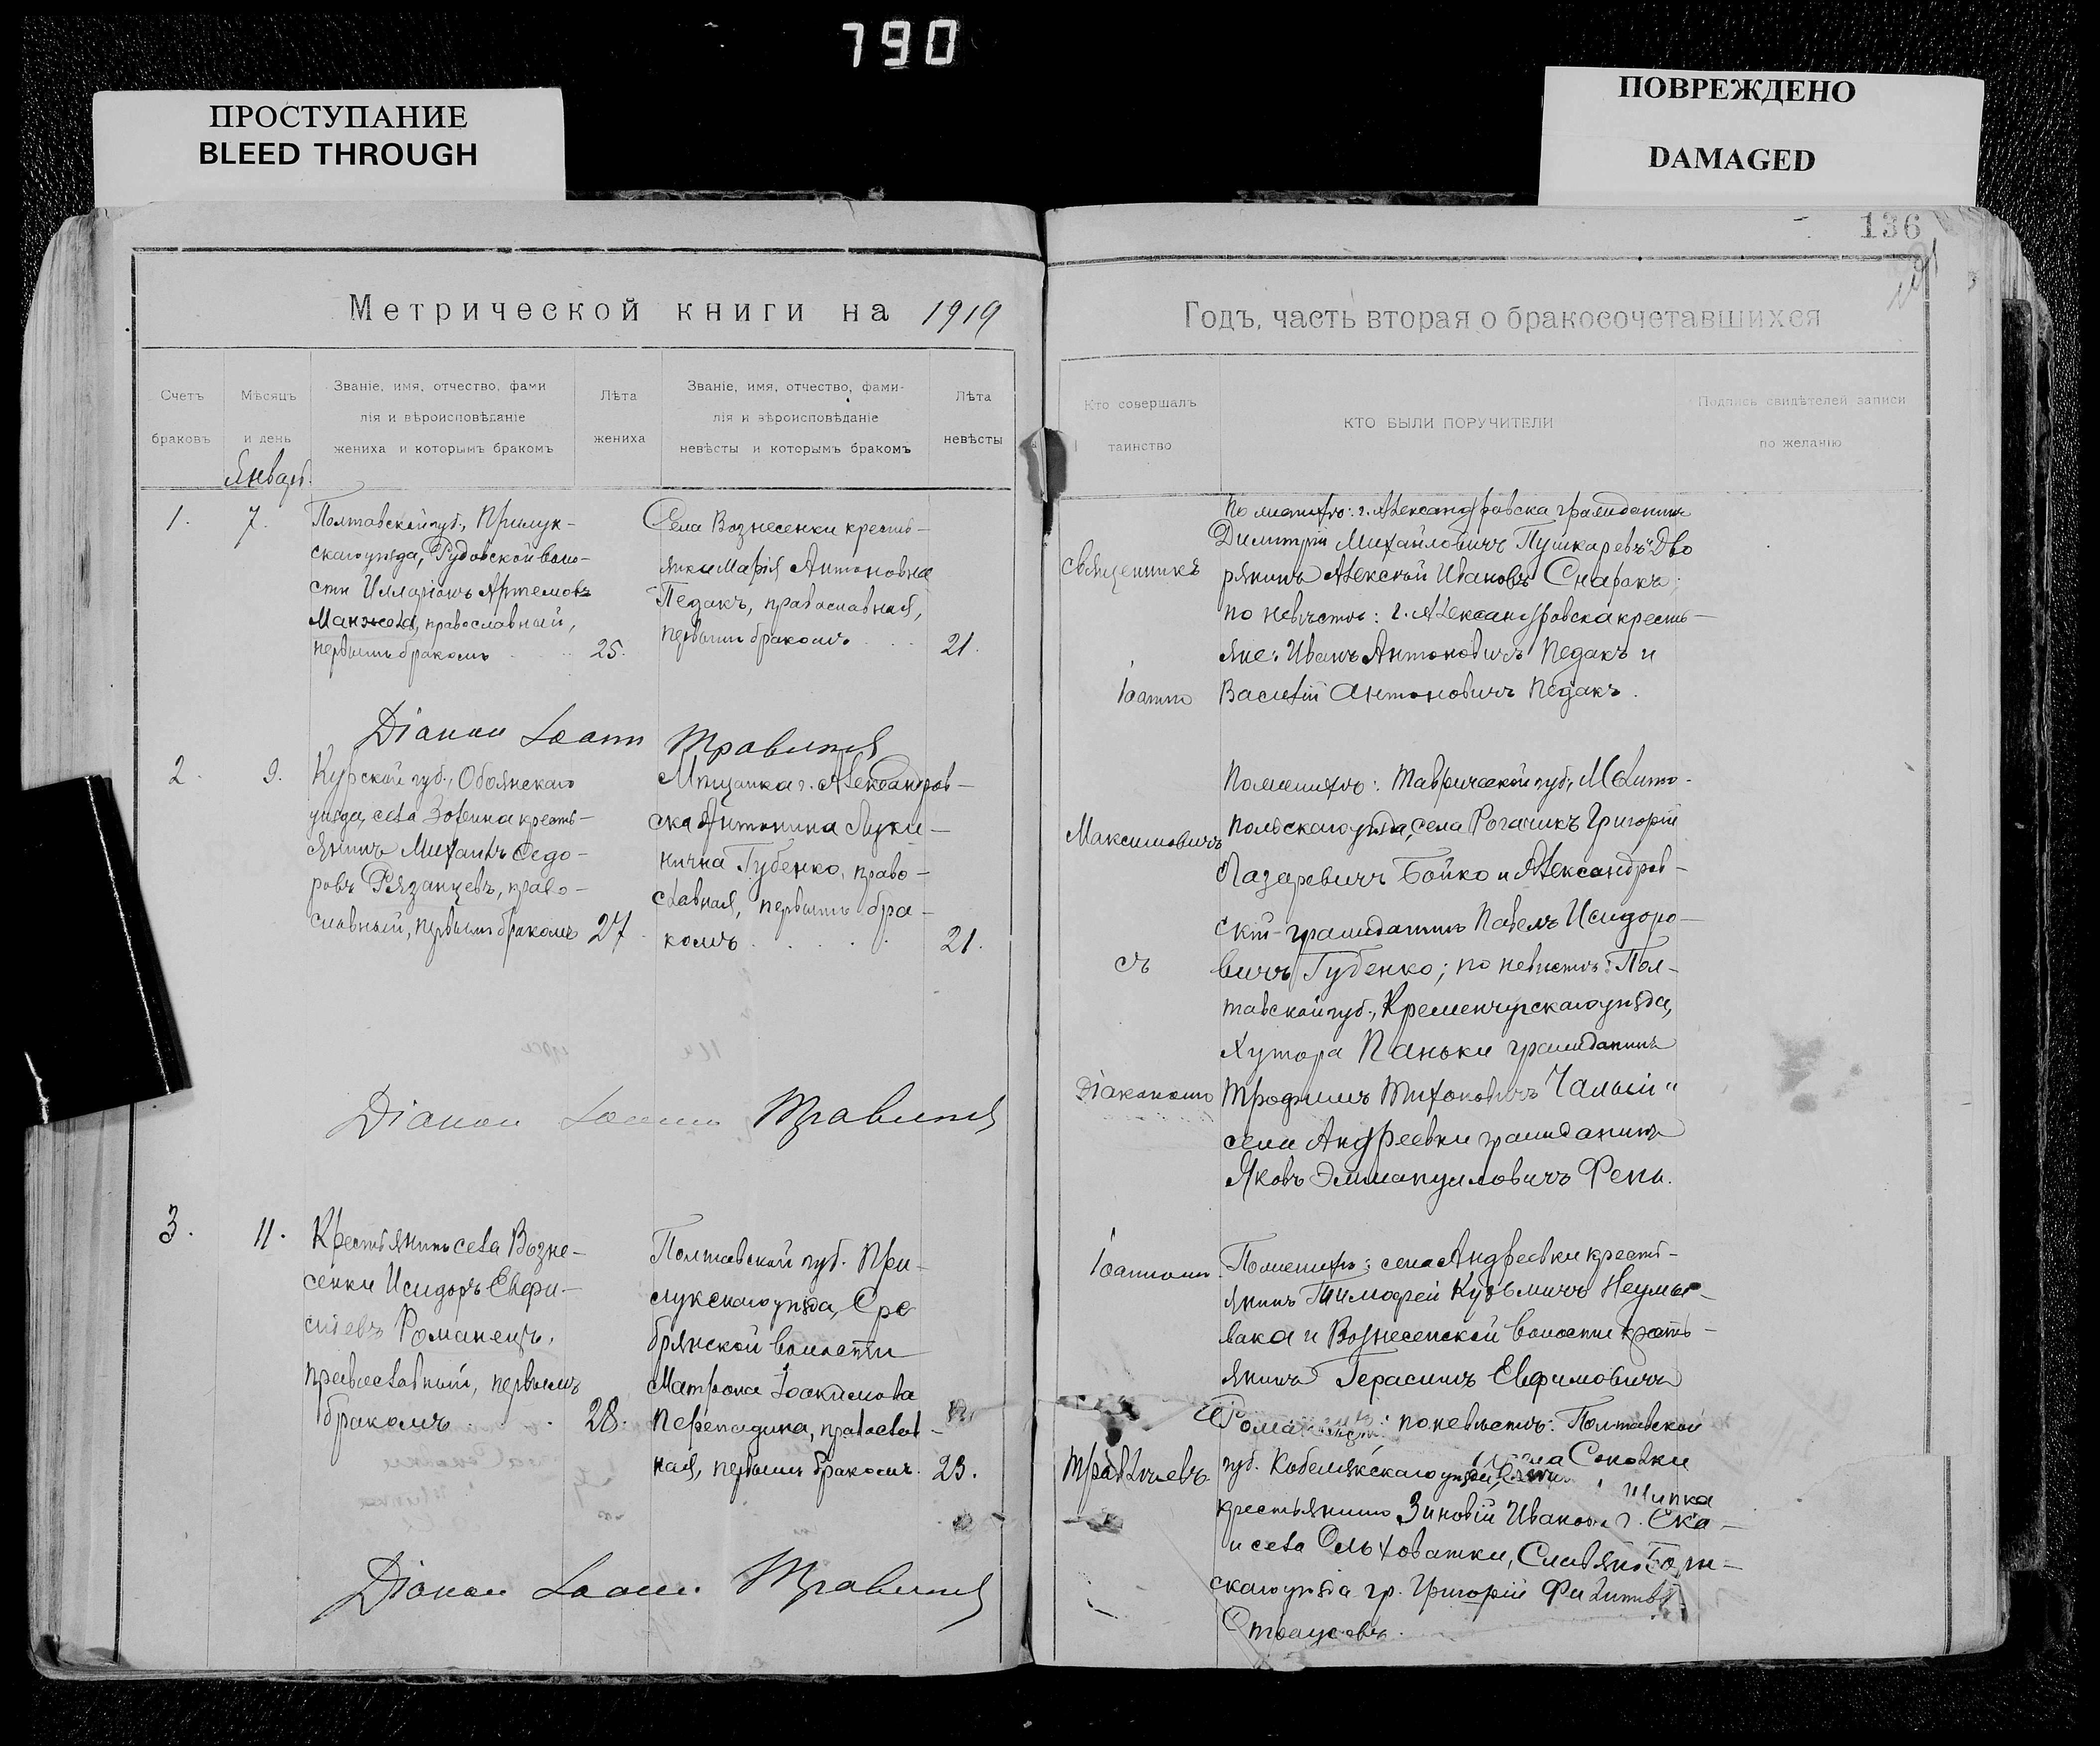 790
ПРОСТУПАНИЕ
BLEED THROUGH
ПОВРЕЖДЕНО
DAMAGED
136
Метрической книги на 1919
Счетъ
браковъ
Мѣсяцъ
и день
Званіе, имя, отчество, фами
лія и вѣроисповѣданіе
жениха и которымъ бракомъ
Лѣта
жениха
Званіе, имя, отчество, фами-
лія и вѣроисповѣданіе
невѣсты и которымъ бракомъ
Лѣта
невѣсты
Январь.
1. 7.
Полтавской губ., Прилук-
скаго уѣзда, Рудовской воло-
сти Илларіонъ Артемовъ
Манжела, православный,
первымъ бракомъ 25.
Села Вознесенки кресть-
янка Марія Антоновна
Педакъ, православная,
первымъ бракомъ 21.
Діакон Іоанн Травинъ
2. 9.
Курской губ., Обоянскаго
уѣзда, села Зорина кресть-
янинъ Михаилъ Ѳедо-
ровъ Рязанцевъ, право-
славный, первымъ бракомъ 27
Мѣщанка г. Александров-
ска Антонина Луки-
нична Губенко, право-
славная, первымъ бра-
комъ 21.
Діакон Іоанн
3. 11.
Крестьянинъ села Возне-
сенки Исидоръ Евфи-
міевъ Романецъ,
православный, первымъ
бракомъ 28.
Полтавской губ. При-
лукскаго уѣзда, Сре
брянской волости
Матрона Іоакимова
Перепадина, православ-
ная, первымъ бракомъ. 23.
Діакон Іоанн
Годъ, часть вторая о бракосочетавшихся
Кто совершалъ
таинство
КТО БЫЛИ ПОРУЧИТЕЛИ
Подпись свидѣтелей записи
по желанію
Священникъ
Іоаннъ
Максимовичъ
съ
Діакономъ
Іоанномъ
По женихѣ: г. Александровска гражданинъ
Димитрій Михайловичъ Пушкаревъ и Дво
рянинъ Алексѣй Ивановъ
по невѣстѣ: г. Александровска кресть-
яне: Иванъ Антоновичъ Педакъ и
Василій Антоновичъ Педакъ.
По женихѣ: Таврической губ., Мелито-
польскаго уѣзда, села Рогачикъ Григорій
Лазаревичъ Бойко и Александров-
скій гражданинъ Павелъ Исидоро-
вичъ Губенко; по невѣстѣ: Пол-
тавской губ., Кременчугскаго уѣзда,
Хутора Паньки гражданинъ
Трофимъ Тихоновичъ Чалый и
села Андреевки гражданинъ
Яковъ Эммануиловичъ
По женихѣ: села Андреевки кресть-
янинъ Тимофей Кузьмичъ Неумы-
вака и Вознесенской волости кресть-
янинъ Герасимъ Евфимовичъ
по невѣстѣ: Полтавской
губ. Кобелякскаго уѣзда, села Соколки
крестьянинъ Зиновій
и села Ольховатки,
скаго уѣзда гр. Григорій